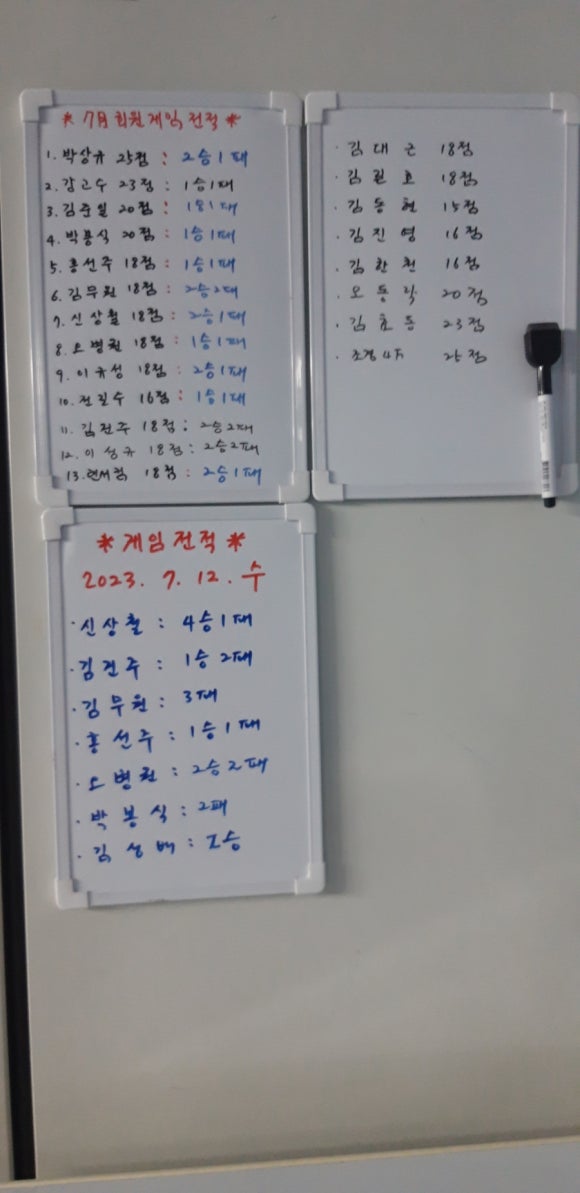 * 7月 회원게임전적 *
1. 박상규 25점 : 2승1패
2. 강고수 23점 : 1승1패
3. 김준일 20점 : 1승1패
4. 박봉식 20점 : 1승1패
5. 홍선주 18점 : 1승1패
6. 김무원 18점 : 2승2패
7. 신상철 18점 : 2승1패
8. 오병원 18점 : 1승1패
9. 이규성 18점 : 2승1패
10. 전길수 16점 : 1승1패
11. 김전주 18점 : 2승2패
12. 이성규 18점 : 2승2패
13. 18점 : 2승1패
· 김대근 18점
· 김길호 18점
· 김동현 15점
· 김진영 16점
· 김한천 16점
· 오동락 20점
· 김초동 23점
· 25점
* 게임전적 *
2023. 7. 12. 수
· 신상철 : 4승1패
· 김전주 : 1승2패
· 김무원 : 3패
· 홍선주 : 1승1패
· 오병원 : 2승2패
· 박봉식 : 2패
· 김성배 : 승